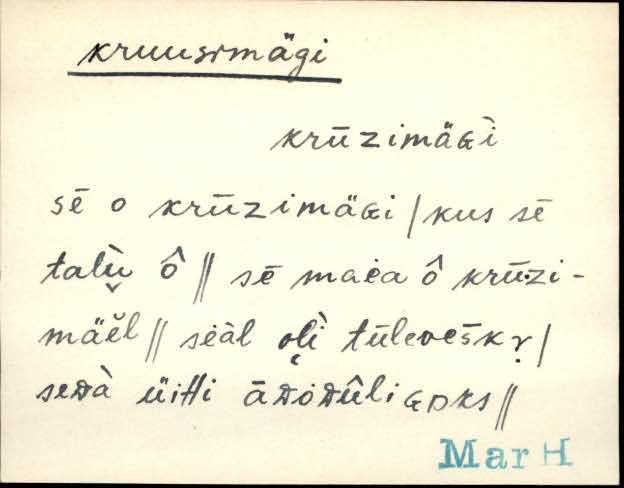 kruusimägi
krūzimäɢì
sē o krūzimäɢi / kus sē
talù̬ ô // sē maėa ô krū·zi-
mäĕl // sėàl olì tūlevešk /
seᴅà üitti āᴅoᴅûliɢᴅks //
Mar H